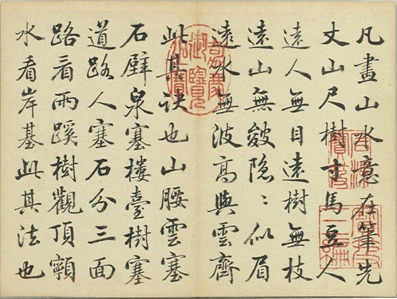 凡畫山水意在筆先
丈山尺樹寸馬豆人
遠人無目遠樹無枝
遠山無皴隐〻似眉
遠水無波高與雲齊
此其訣也山腰雲塞
石壁泉塞樓臺樹塞
道路人塞石分三面
路看兩蹊樹觀頂
水看岸基此其法也
嘉慶御覽之寶